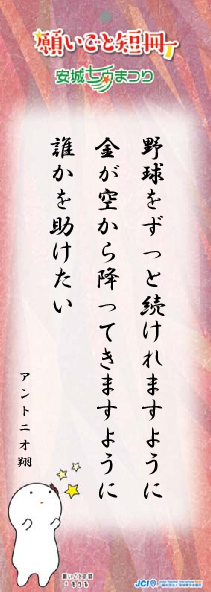 願いごと短冊
安城七夕まつり
野球をずっと続けれますように
金が空から降ってきますように
誰かを助けたい
アントニオ翔
願いごと短冊
JCI